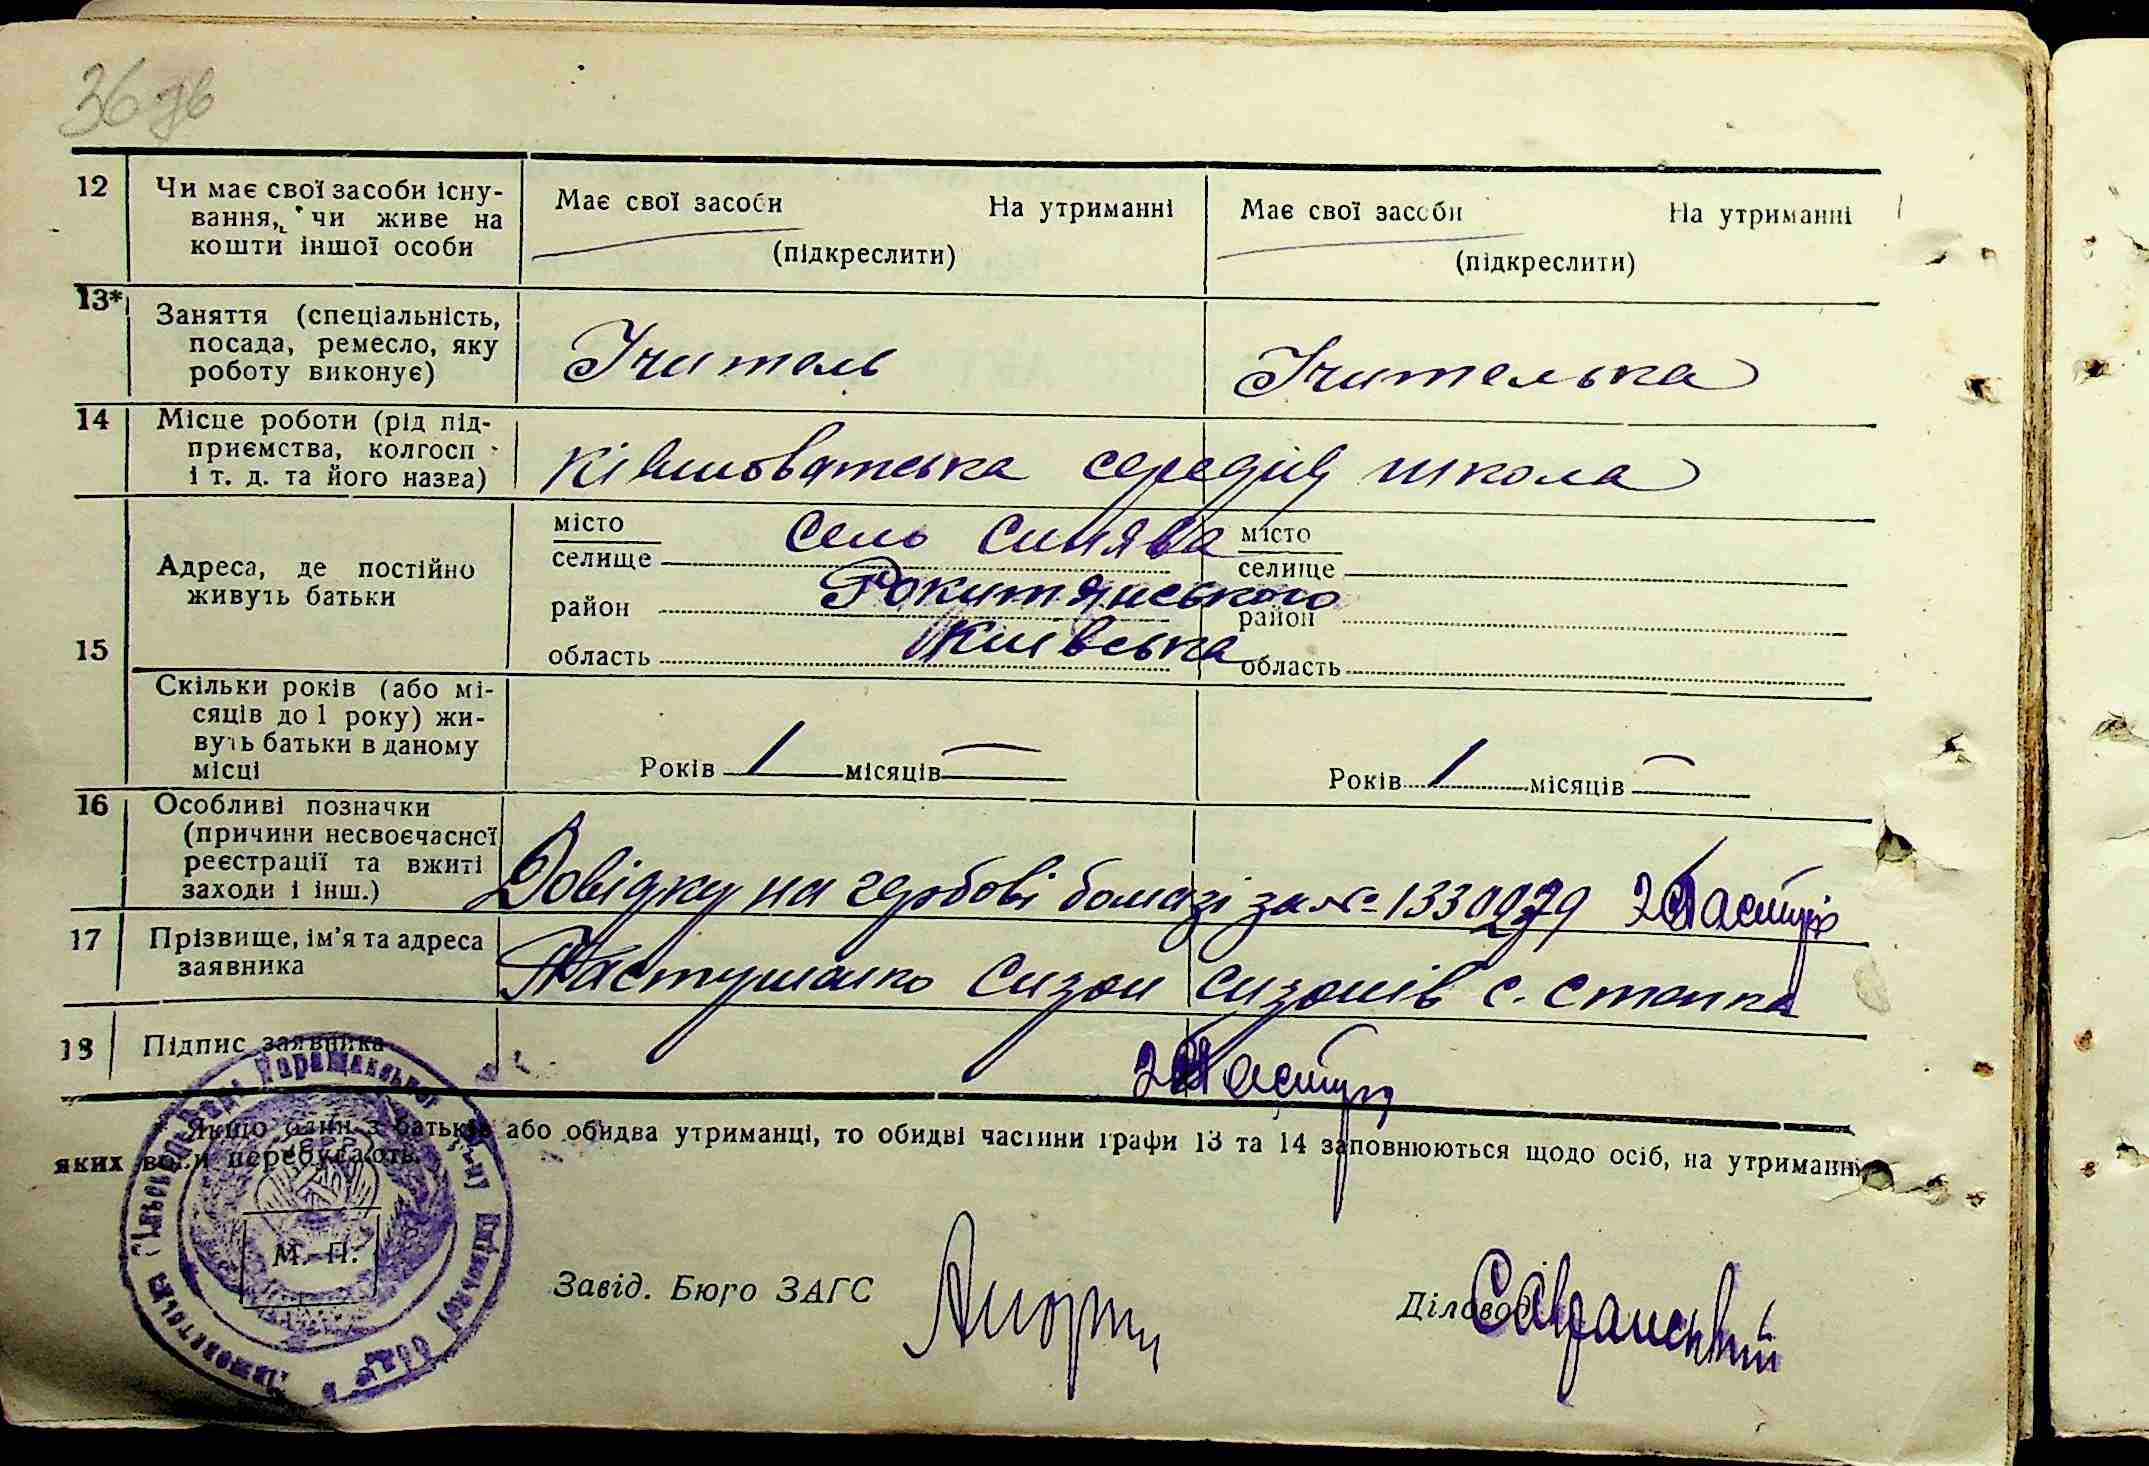 36 зв
12 Чи має свої засоби існу-
вання, чи живе на
кошти іншої особи
Має свої засоби На утриманні
(підкреслити)
Має свої засоби На утриманні
(підкреслити)
13* Заняття (спеціальність,
посада, ремесло, яку
роботу виконує)
Учитель
Учителька
14 Місце роботи (рід під-
приємства, колгосп
і т. д. та його назва)
Ківшоватська середня школа
15
Адреса, де постійно
живуть батьки
місто
селище
Село Синява
район Рокитянського
область Київська
місто
селище
район
область
Скільки років (або мі-
сяців до 1 року) жи-
вуть батьки в даному
місці
Років 1 місяців —
Років 1 місяців —
16 Особливі позначки
(причини несвоєчасної
реєстрації та вжиті
заходи і інш.)
Довідку на гербові бомазі за №
17 Прізвище, ім'я та адреса
заявника
Пастушенко Сизон Сизонів с.
18 Підпис заявника
* Якщо один з батьків або обидва утриманці, то обидві частини графи 13 та 14 заповнюються щодо осіб, на утриманні
яких вони перебувають.
М. П.
Завід. Бюро ЗАГС
Діловод